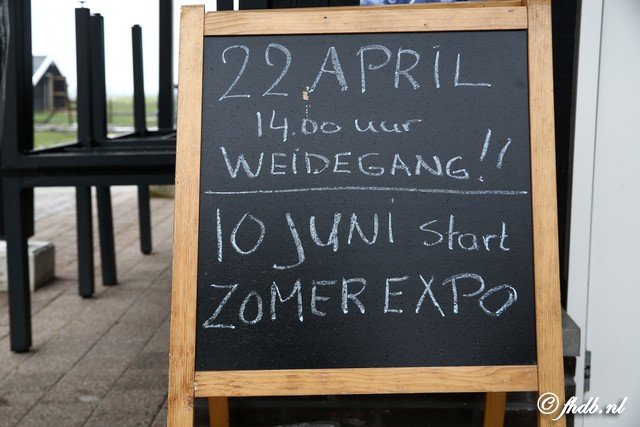 22 APRIL
14.00 uur
WEIDEGANG!!
10 JUNI start
ZOMER EXPO
© fhdb.nl